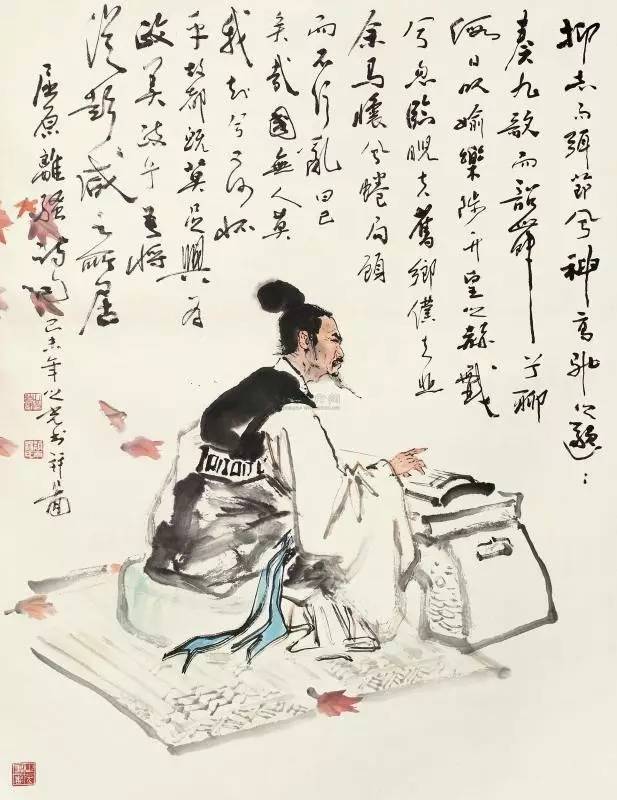 抑志而弭節兮神高馳之邈：
奏九歌而韶舞兮聊
假日以媮樂陟升皇之赫戲
兮忽臨睨夫舊鄉僕夫悲
余馬懷兮蜷局顧
而不行亂曰已
矣哉國無人莫
我知兮又何怀
乎故都既莫足與為
政美政兮吾將
從彭咸之所居
屈原離騷詩句
己未年之光書